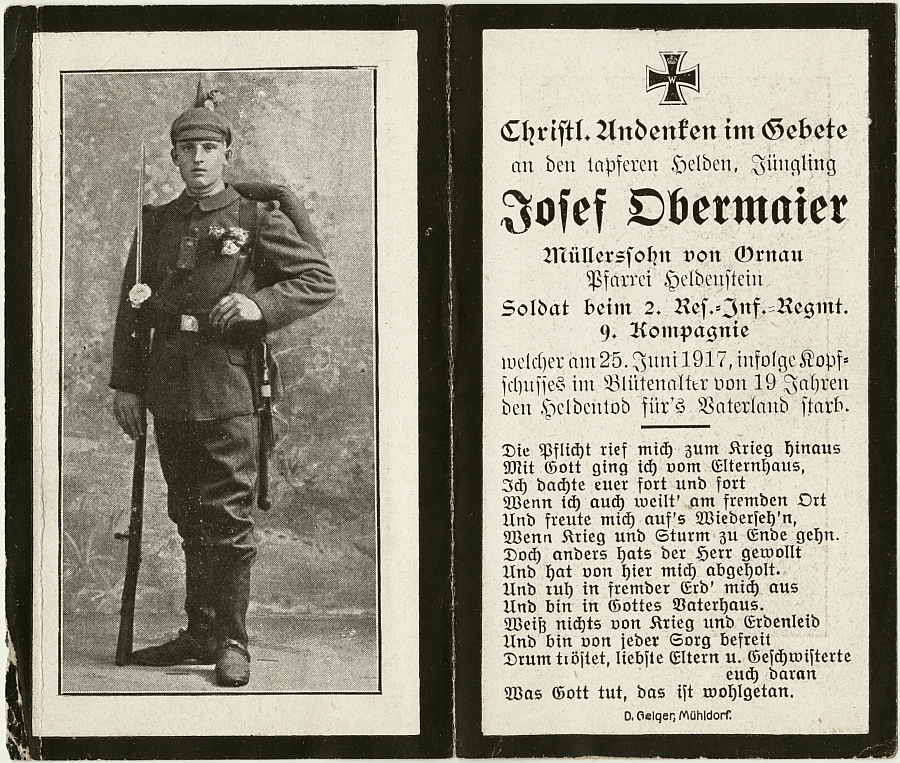 W
Christl. Andenken im Gebete
an den tapferen Helden, Jüngling
Josef Obermaier
Müllerssohn von Ornau
Pfarrei Heldenstein
Soldat beim 2. Res.-Inf.-Regmt.
9. Kompagnie
welcher am 25. Juni 1917, infolge Kopf-
schusses im Blütenalter von 19 Jahren
den Heldentod für's Vaterland starb.
Die Pflicht rief mich zum Krieg hinaus
Mit Gott ging ich vom Elternhaus,
Ich dachte euer fort und fort
Wenn ich auch weilt' am fremden Ort
Und freute mich auf's Wiederseh'n,
Wenn Krieg und Sturm zu Ende gehn.
Doch anders hats der Herr gewollt
Und hat von hier mich abgeholt.
Und ruh in fremder Erd' mich aus
Und bin in Gottes Vaterhaus.
Weiß nichts von Krieg und Erdenleid
Und bin von jeder Sorg befreit
Drum tröstet, liebste Eltern u. Geschwisterte
euch daran
Was Gott tut, das ist wohlgetan.
D. Geiger, Mühldorf.